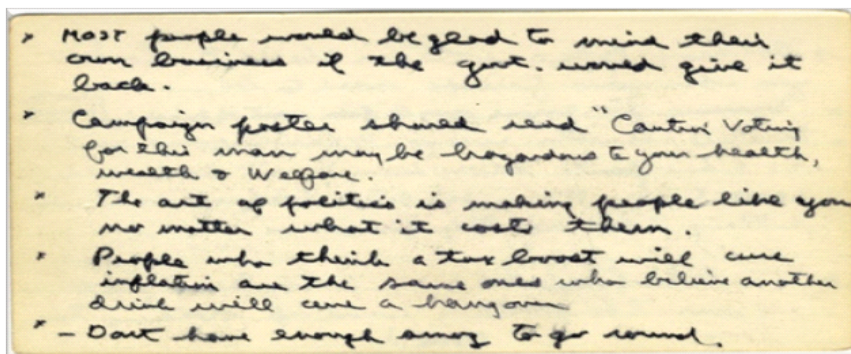 × Most people would be glad to mind their
own business if the govt. would give it
back.
× Campaign poster should read "Caution Voting
for this man may be hazardous to your health,
wealth & Welfare.
× The art of politics is making people like you
no matter what it costs them.
× People who think a tax boost will cure
inflation are the same ones who believe another
drink will cure a hangover
× – Dont have enough to go round.